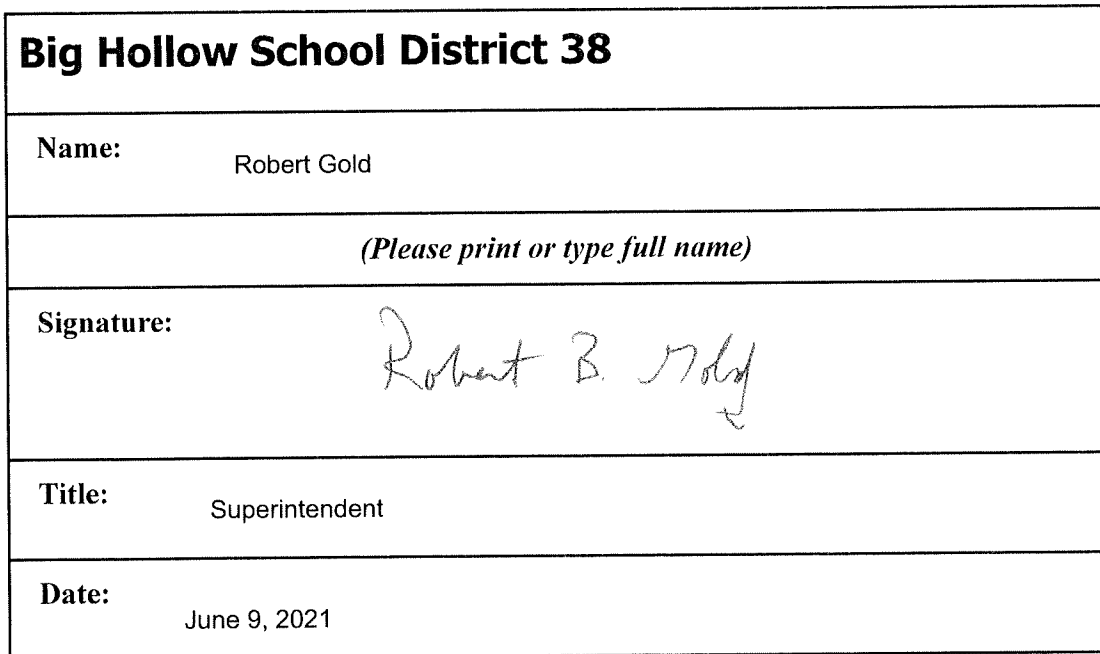 Big Hollow School District 38
Name:
Robert Gold
(Please print or type full name)
Signature:
Robert B. Gold
Title:
Superintendent
Date:
June 9, 2021